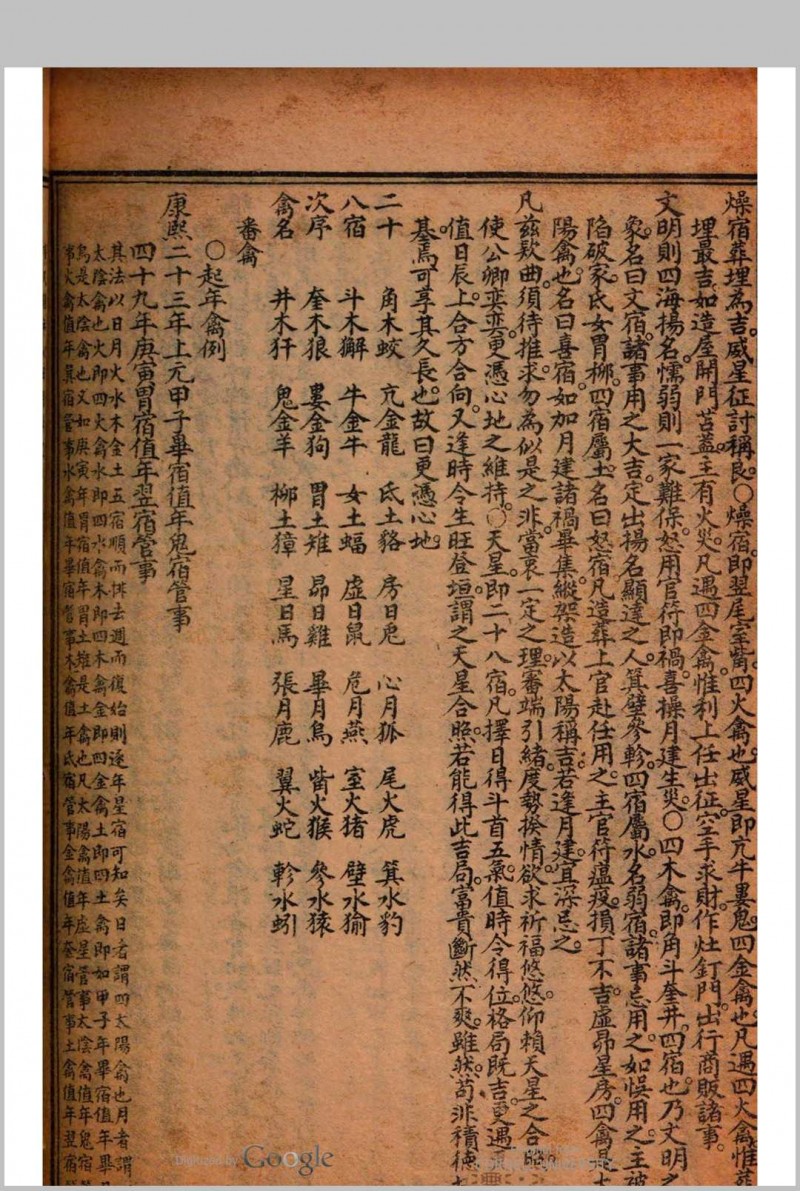 燥宿葬埋為吉威星征討稱良○燥宿即翌尾室觜四火禽也威星即亢牛婁鬼四金禽也凡遇四火禽惟葬
埋最吉如造屋開門苫蓋主有火災凡遇四金禽惟利上任出征空手求財作灶釘門出行商販諸事
文明則四海揚名懦弱則一家難保怒用官符即禍喜操月建生災○四木禽即角斗奎井四宿也乃文明之
象名曰文宿諸事用之大吉定出揚名顯達之人箕壁參軫四宿屬水名弱宿諸事忌用之如悞用之主被
陷破家氐女胃柳四宿屬土名曰怒宿凡造葬上官赴任用之主官符瘟疫損丁不吉虛昴星房四禽是太
陽禽也名曰喜宿如加月建諸禍畢集縱架造以太陽稱吉若逢月建宜深忌之
凡茲欵曲須待推求勿為似是之非當衷一定之理審端引緒度勢揆情欲求祈福悠悠仰賴天星之合照
使公卿奕奕更憑心地之維持○天星即二十八宿凡擇日得斗首五氣值時令得位格局既吉更遇
值日辰上合方合向又逢時令生旺登垣謂之天星合照若能得此吉局富貴斷然不爽雖然苟非積德
基焉可享其久長也故曰更憑心地
二十 角木蛟 亢金龍 氐土貉 房日兎 心月狐 尾火虎 箕水豹
八宿 斗木獬 牛金牛 女土蝠 虛日鼠 危月燕 室火猪 壁水㺄
次序 奎木狼 婁金狗 胃土雉 昴日雞 畢月烏 觜火猴 參水猿
禽名 井木犴 鬼金羊 柳土獐 星日馬 張月鹿 翼火蛇 軫水蚓
番禽
○起年禽例
康熙二十三年上元甲子畢宿值年鬼宿管事
四十九年庚寅胃宿值年翌宿管事
其法以日月火水木金土五宿順而排去週而復始則逐年星宿可知矣日者謂四太陽禽也月者謂
太陰禽也火即四火禽水即四水禽木即四木禽金即四金禽土即四土禽即如甲子年畢宿值年畢
烏是太陰禽也又如庚寅年胃宿值年胃土雉是土禽也凡太陽禽值年虛星管事太陰禽值年鬼宿
事火禽值年箕宿管事水禽值年畢宿管事木禽值年氐宿管事金禽值年奎宿管事土禽值年翌宿
Digitized by Google